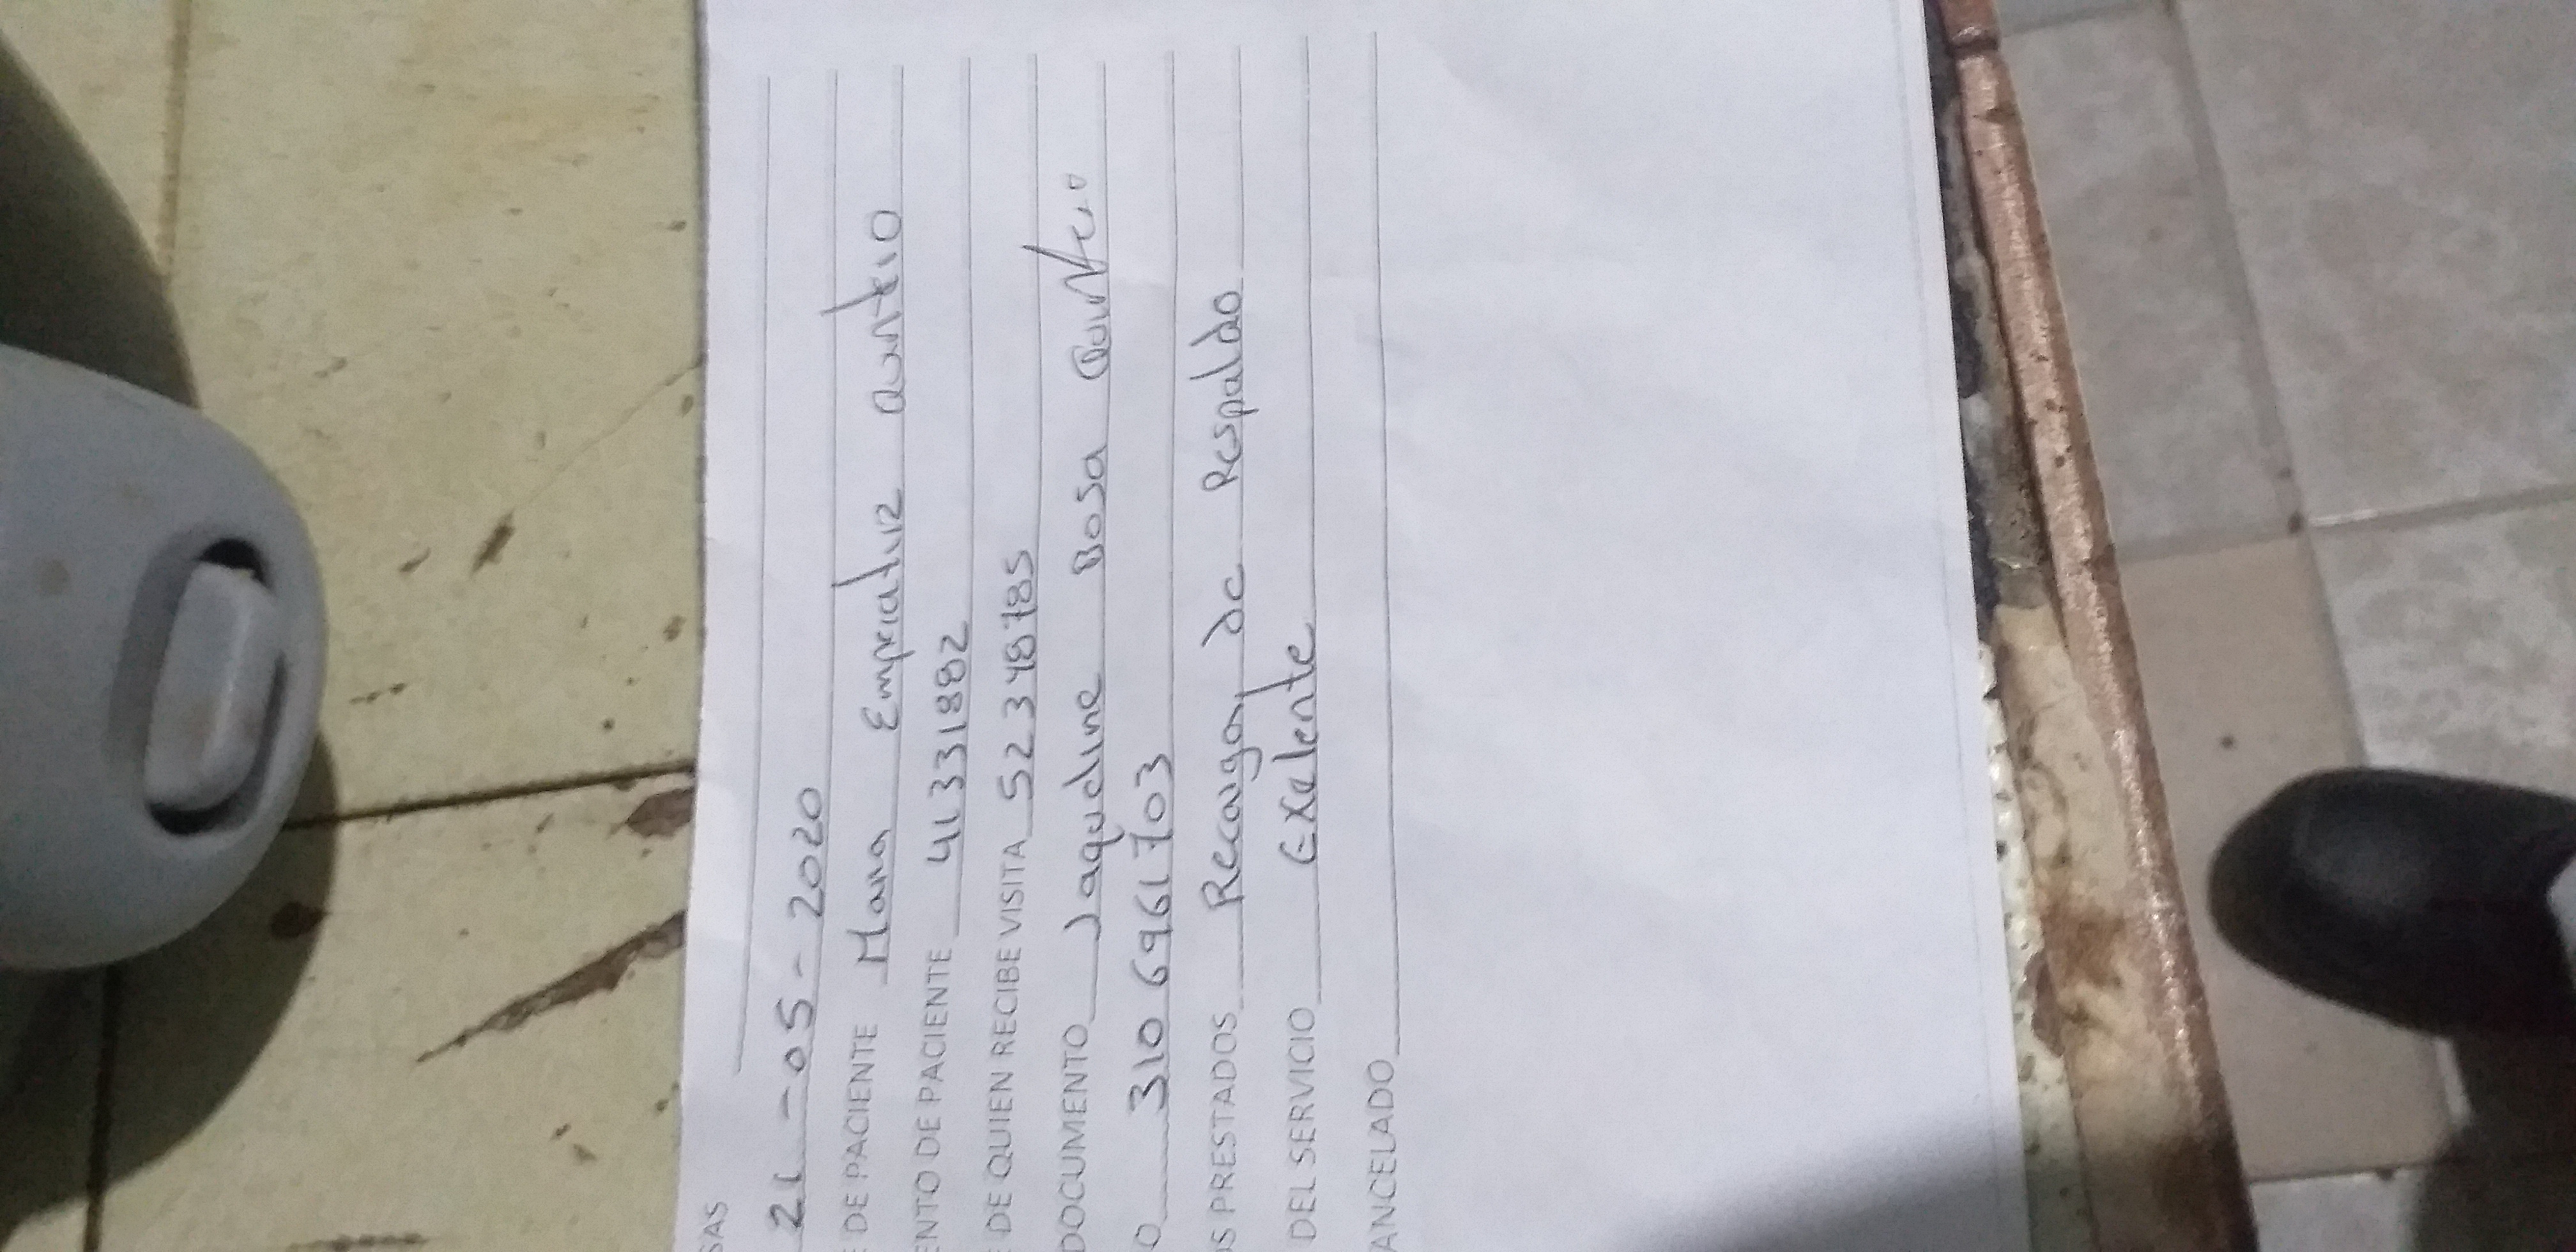 SAS
21-05-2020
DE PACIENTE Maria Emperatriz Quintero
ENTO DE PACIENTE 41331882
DE QUIEN RECIBE VISITA 52348785
DOCUMENTO Jaqueline Bosa Quintero
O 310 6961703
OS PRESTADOS Recarga de Respaldo
DEL SERVICIO Exelente
ANCELADO